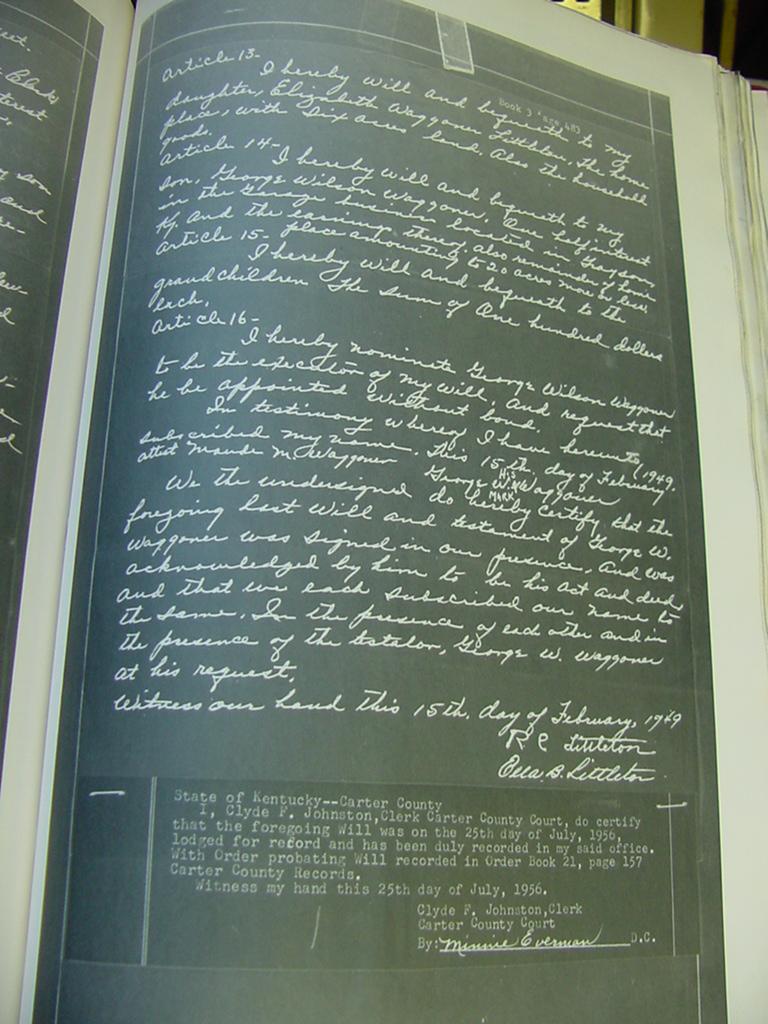 Article 13-
Book 3 Page 483
I hereby will and bequeath to my
daughter, Elizabeth Waggoner Littleton, the home
place, with six acres land. Also the household
goods.
Article 14-
I hereby will and bequeath to my
son, George Wilson Waggoner, One half interest
in the Garage business located in Grayson
Ky. and the earnings thereof, also remainder of home
Article 15- place amounting to 20 acres more or less
I hereby will and bequeath to the
grandchildren The sum of One hundred dollars
each.
Article 16-
I hereby nominate George Wilson Waggoner
to be the executor of my will, and request that
he be appointed without bond.
In testimony whereof I have hereunto
subscribed my name. This 15th. day of February (1949.
attest Maude M. Waggoner George W. His Mark Waggoner
We the undersigned do hereby certify that the
foregoing last Will and testament of George W.
Waggoner was signed in our presence, and was
acknowledged by him to be his act and deed,
and that we each subscribed our name to
the same, In the presence of each other and in
the presence of the testator, George W. Waggoner
at his request.
Witness our hand this 15th. day of February, 1949
R C Littleton
Ella B. Littleton
State of Kentucky--Carter County
I, Clyde F. Johnston,Clerk Carter County Court, do certify
that the foregoing Will was on the 25th day of July, 1956,
lodged for record and has been duly recorded in my said office.
With Order probating Will recorded in Order Book 21, page 157
Carter County Records.
Witness my hand this 25th day of July, 1956.
Clyde F. Johnston,Clerk
Carter County Court
By: Minnie Everman D.C.